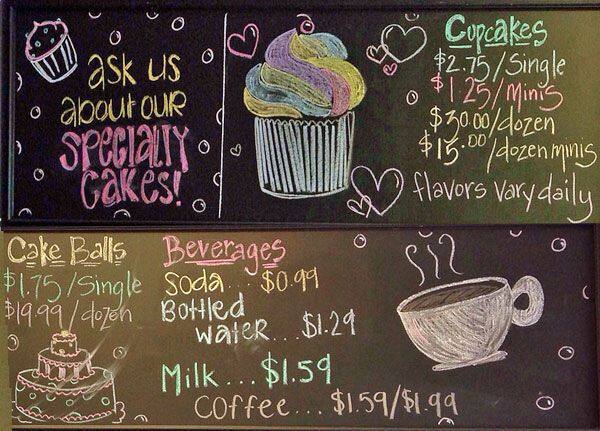 ask us
about our
SPECIALTY
CAKES!
Cupcakes
$2.75/Single
$1.25/Minis
$30.00/dozen
$15.00/dozen minis
flavors vary daily
Cake Balls
$1.75/Single
$19.99/dozen
Beverages
Soda... $0.99
Bottled
water... $1.29
Milk... $1.59
Coffee... $1.59/$1.99